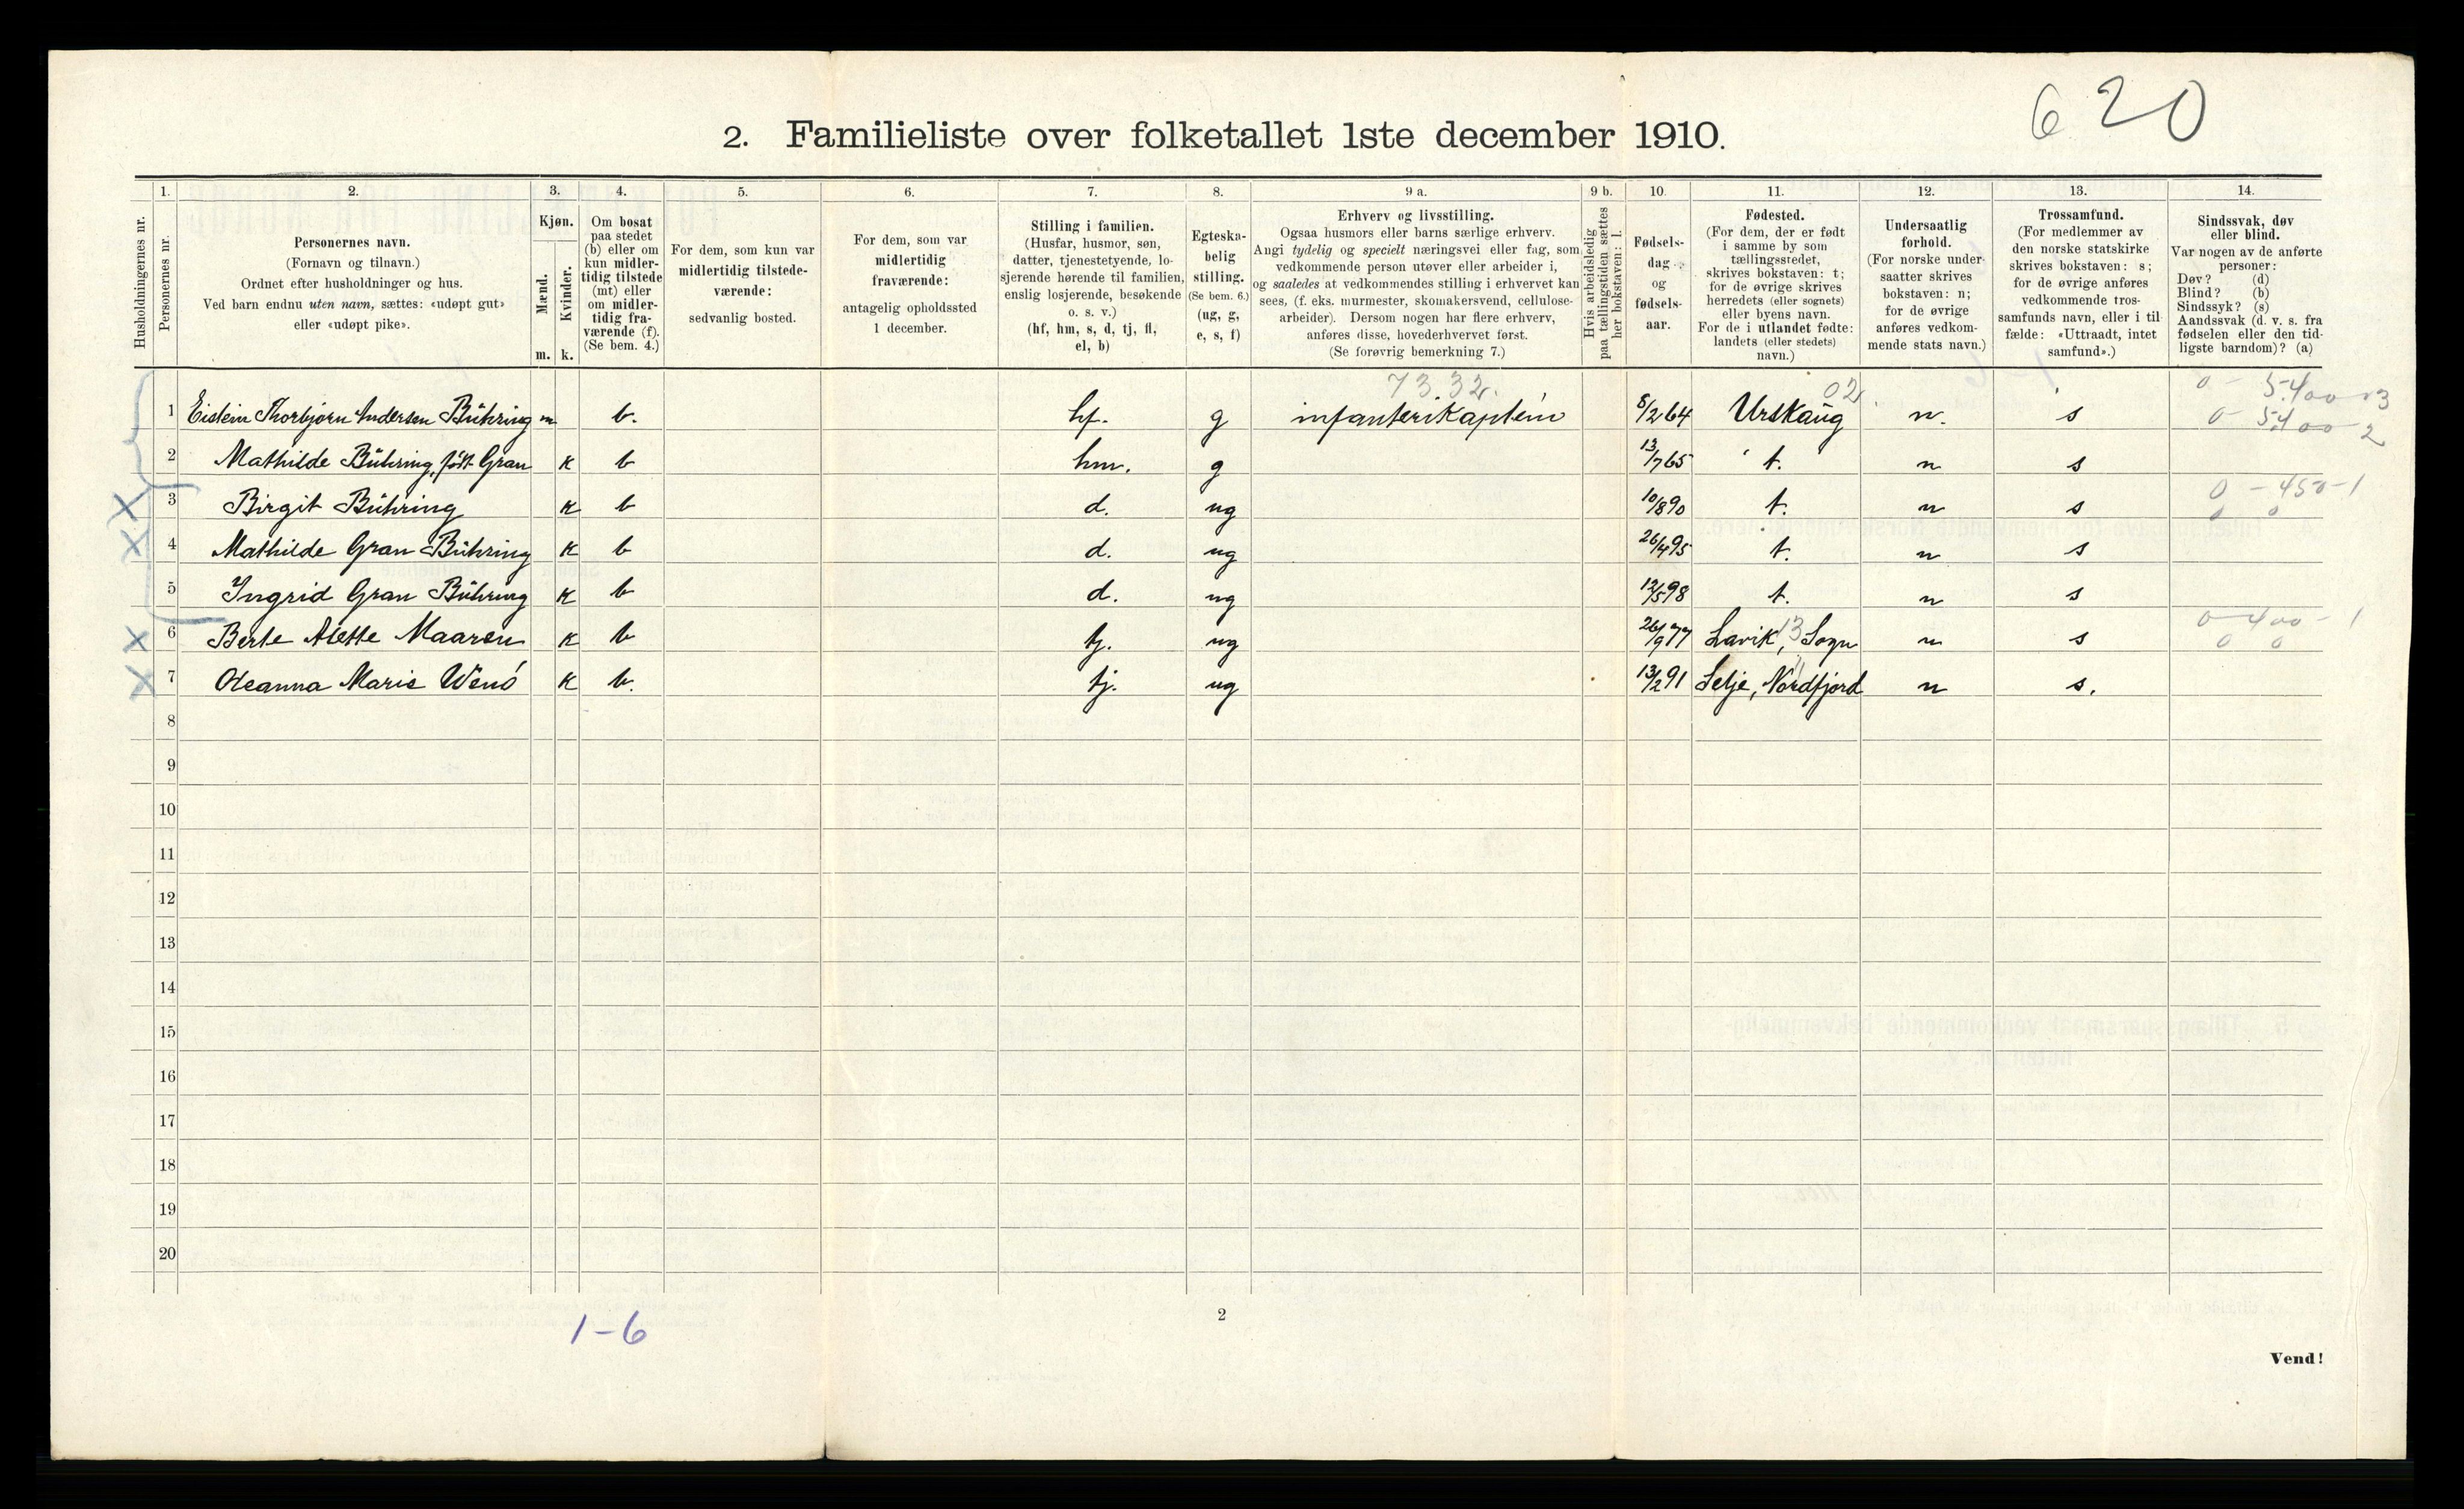 620
2. Familieliste over folketallet 1ste december 1910.
Husholdningernes nr.
1.
Personernes nr.
2.
Personernes navn.
(Fornavn og tilnavn.)
Ordnet efter husholdninger og hus.
Ved barn endnu uten navn, sættes: «udøpt gut»
eller «udøpt pike».
3.
Kjøn.
Mænd.
Kvinder.
m. k.
4.
Om bosat
paa stedet
(b) eller om
kun midler-
tidig tilstede
(mt) eller
om midler-
tidig fra-
værende (f).
(Se bem. 4.)
5.
For dem, som kun var
midlertidig tilstede-
værende:
sedvanlig bosted.
6.
For dem, som var
midlertidig
fraværende:
antagelig opholdssted
1 december.
7.
Stilling i familien.
(Husfar, husmor, søn,
datter, tjenestetyende, lo-
sjerende hørende til familien,
enslig losjerende, besøkende
o. s. v.)
(hf, hm, s, d, tj, fl,
el, b)
8.
Egteska-
belig
stilling.
(Se bem. 6.)
(ug, g,
e, s, f)
9 a.
Erhverv og livsstilling.
Ogsaa husmors eller barns særlige erhverv.
Angi tydelig og specielt næringsvei eller fag, som
vedkommende person utøver eller arbeider i,
og saaledes at vedkommendes stilling i erhvervet kan
sees, (f. eks. murmester, skomakersvend, cellulose-
arbeider). Dersom nogen har flere erhverv,
anføres disse, hovederhvervet først.
(Se forøvrig bemerkning 7.)
9 b.
Hvis arbeidsledig
paa tællingstiden sættes
her bokstaven: l.
10.
Fødsels-
dag
og
fødsels-
aar.
11.
Fødested.
(For dem, der er født
i samme by som
tællingsstedet,
skrives bokstaven: t;
for de øvrige skrives
herredets (eller sognets)
eller byens navn.
For de i utlandet fødte:
landets (eller stedets)
navn.)
12.
Undersaatlig
forhold.
(For norske under-
saatter skrives
bokstaven: n;
for de øvrige
anføres vedkom-
mende stats navn.)
13.
Trossamfund.
(For medlemmer av
den norske statskirke
skrives bokstaven: s;
for de øvrige anføres
vedkommende tros-
samfunds navn, eller i til-
fælde: «Uttraadt, intet
samfund».)
14.
Sindssvak, døv
eller blind.
Var nogen av de anførte
personer:
Døv? (d)
Blind? (b)
Sindssyk? (s)
Aandssvak (d. v. s. fra
fødselen eller den tid-
ligste barndom)? (a)
7332. 02. 0 - 5.400 - 3
1 Eistein Thorbjørn Andersen Bühring m b. hf. g infanterikaptein 8/2 64 Urskaug n. s 0 5400 2
2 Mathilde Bühring, født Gran k b hm. g 13/7 65 t. n s
3 Birgit Bühring k b d. ug 10/8 90 t. n s 0 - 450-1
0 0
4 Mathilde Gran Bühring k b d. ug 26/4 95 t. n s
5 Ingrid Gran Bühring k b d. ug 12/5 98 t. n s
6 Berte Alette Maaren k b tj. ug 26/9 77 Lavik, 13 Sogn n s 0 400 - 1
0 0
7 Oleanna Marie Wenö k b. tj. ug 13/2 91 Selje, Nordfjord n s.
8
9
10
11
12
13
14
15
16
17
18
19
20
1-6
2
Vend!